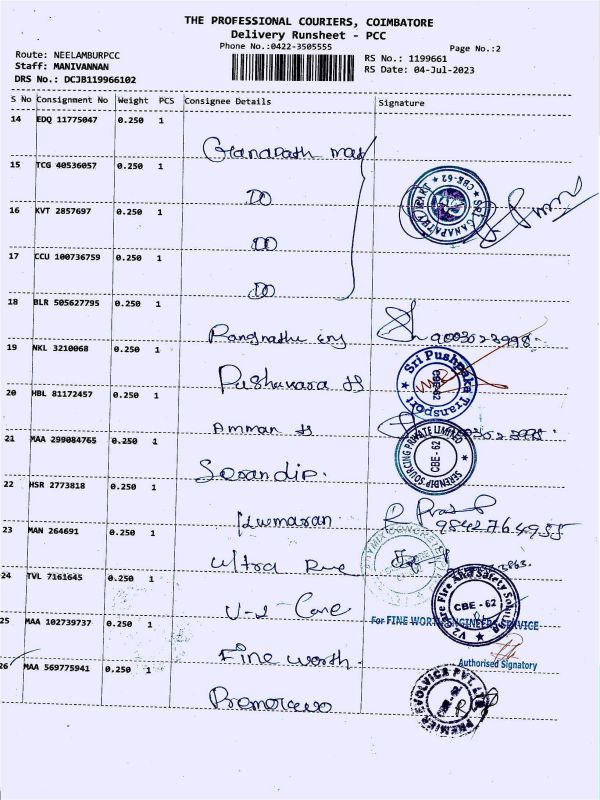 THE PROFESSIONAL COURIERS, COIMBATORE
Delivery Runsheet - PCC
Phone No.:0422-3505555
Page No.:2
Route: NEELAMBURPCC
Staff: MANIVANNAN
DRS No.: DCJB119966102
RS No.: 1199661
RS Date: 04-Jul-2023
S No Consignment No Weight PCS Consignee Details Signature
14 EDQ 11775047 0.250 1
15 TCG 40536057 0.250 1
DO
SRI GANAPATHY MART ★ CBE-62 ★
16 KVT 2857697 0.250 1
DO
17 CCU 100736759 0.250 1
DO
18 BLR 505627795 0.250 1
9003023998
19 NKL 3210068 0.250 1
Sri Pushpaka Transport
20 HBL 81172457 0.250 1
Amman
21 MAA 299084765 0.250 1
SERENDIP SOURCING PRIVATE LIMITED
CBE - 62
22 HSR 2773818 0.250 1
Kumaran
23 MAN 264691 0.250 1
Ultra
24 TVL 7161645 0.250 1
V-2 Care
V2 Care Fire And Safety Solution
CBE - 62
25 MAA 102739737 0.250 1
For FINE WORTH ENGINEERS SERVICE
Authorised Signatory
Fine worth
26 MAA 569775941 0.250 1
PREMIER EVOLVICS PVT. LTD.